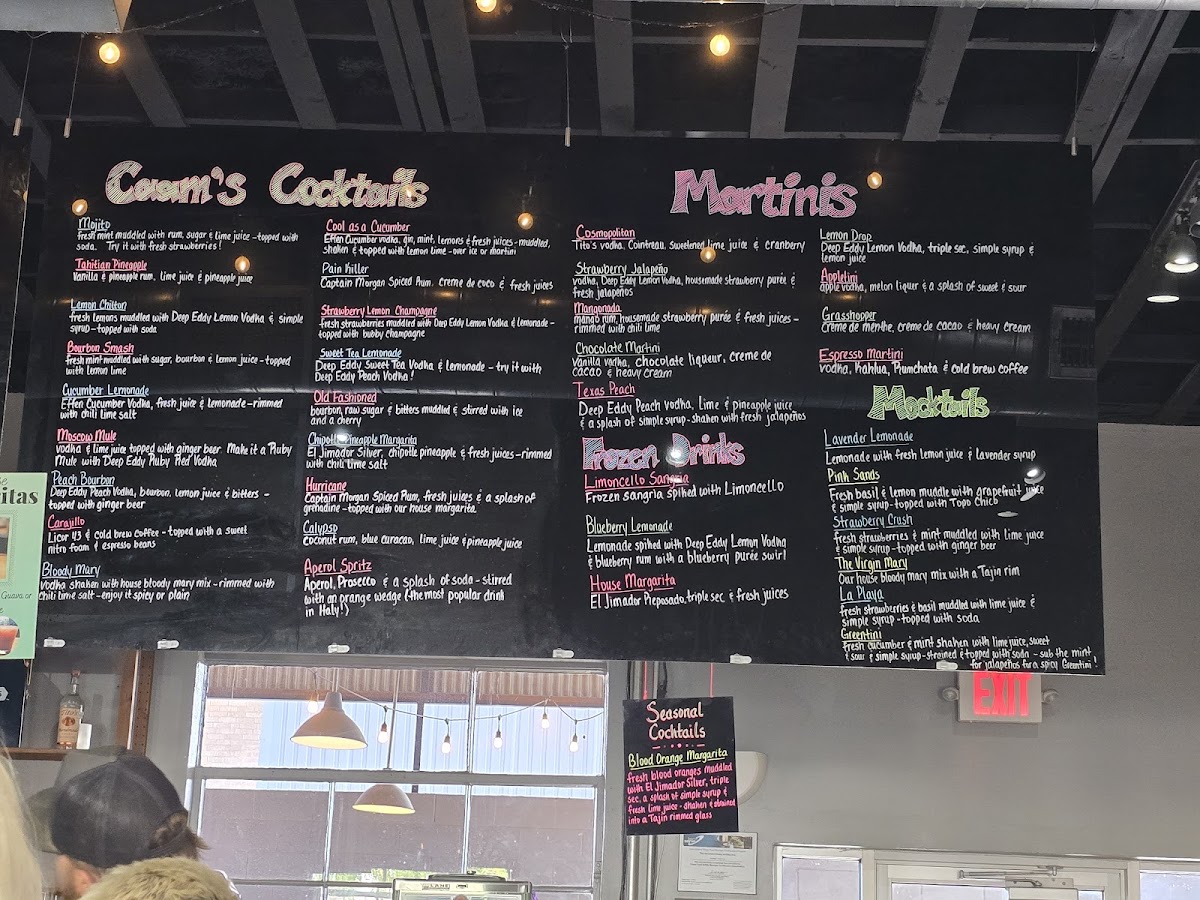 Cocktails
Mojito
fresh mint muddled with rum, sugar & lime juice - topped with
soda. Try it with fresh strawberries!
Tahitian Pineapple
Vanilla & pineapple rum, lime juice & pineapple juice
Lemon Chilton
fresh lemons muddled with Deep Eddy Lemon Vodka & simple
syrup - topped with soda
Bourbon Smash
fresh mint muddled with sugar, bourbon & lemon juice - topped
with lemon lime
Cucumber Lemonade
Effen Cucumber Vodka, fresh juice & lemonade - rimmed
with chili lime salt
Moscow Mule
vodka & lime juice topped with ginger beer. Make it a Ruby
Mule with Deep Eddy Ruby Red Vodka
Peach Bourbon
Deep Eddy Peach Vodka, bourbon, lemon juice & bitters -
topped with ginger beer
Carajillo
Licor 43 & cold brew coffee - topped with a sweet
nitro foam & espresso beans
Bloody Mary
vodka shaken with house bloody mary mix - rimmed with
chili lime salt - enjoy it spicy or plain
Cool as a Cucumber
Effen Cucumber vodka, gin, mint, lemons & fresh juices - muddled,
shaken & topped with lemon lime - over ice or martini
Pain Killer
Captain Morgan Spiced Rum, creme de coco & fresh juices
Strawberry Lemon Champagne
fresh strawberries muddled with Deep Eddy Lemon Vodka & lemonade -
topped with bubby champagne
Sweet Tea Lemonade
Deep Eddy Sweet Tea Vodka & lemonade - try it with
Deep Eddy Peach Vodka!
Old Fashioned
bourbon, raw sugar & bitters muddled & stirred with ice
and a cherry
Chipotle Pineapple Margarita
El Jimador Silver, chipotle pineapple & fresh juices - rimmed
with chili lime salt
Hurricane
Captain Morgan Spiced Rum, fresh juices & a splash of
grenadine - topped with our house margarita
Calypso
coconut rum, blue curacao, lime juice & pineapple juice
Aperol Spritz
Aperol, Prosecco & a splash of soda - stirred
with an orange wedge (the most popular drink
in Italy!)
Martinis
Cosmopolitan
Tito's vodka, Cointreau, Sweetened lime juice & cranberry
Strawberry Jalapeño
vodka, Deep Eddy Lemon Vodka, housemade strawberry purée &
fresh jalapeños
Mangonada
mango rum, housemade strawberry purée & fresh juices -
rimmed with chili lime
Chocolate Martini
Vanilla vodka, chocolate liqueur, creme de
cacao & heavy cream
Texas Peach
Deep Eddy Peach vodka, lime & pineapple juice
& a splash of simple syrup - shaken with fresh jalapeños
Frozen Drinks
Limoncello Sangria
Frozen sangria spiked with Limoncello
Blueberry Lemonade
Lemonade spiked with Deep Eddy Lemon Vodka
& blueberry rum with a blueberry purée swirl
House Margarita
El Jimador Reposado, triple sec & fresh juices
Lemon Drop
Deep Eddy Lemon Vodka, triple sec, simple syrup &
lemon juice
Appletini
apple vodka, melon liquer & a splash of sweet & sour
Grasshopper
Creme de menthe, creme de cacao & heavy cream
Espresso Martini
vodka, Kahlua, Rumchata & cold brew coffee
Mocktails
Lavender Lemonade
Lemonade with fresh lemon juice & lavender syrup
Pink Sands
Fresh basil & lemon muddle with grapefruit juice
& simple syrup - topped with Topo Chico
Strawberry Crush
fresh strawberries & mint muddled with lime juice
& simple syrup - topped with ginger beer
The Virgin Mary
Our house bloody mary mix with a Tajin rim
La Playa
fresh strawberries & basil muddled with lime juice &
simple syrup - topped with soda
Greentini
fresh cucumber & mint shaken with lime juice, sweet
& sour & simple syrup - strained & topped with soda - sub the mint
for jalapeños for a spicy Greentini!
Seasonal
Cocktails
Blood Orange Margarita
fresh blood oranges muddled
with El Jimador Silver, triple
sec, a splash of simple syrup &
fresh lime juice - shaken & strained
into a Tajin rimmed glass
EXIT
itas
Guava or